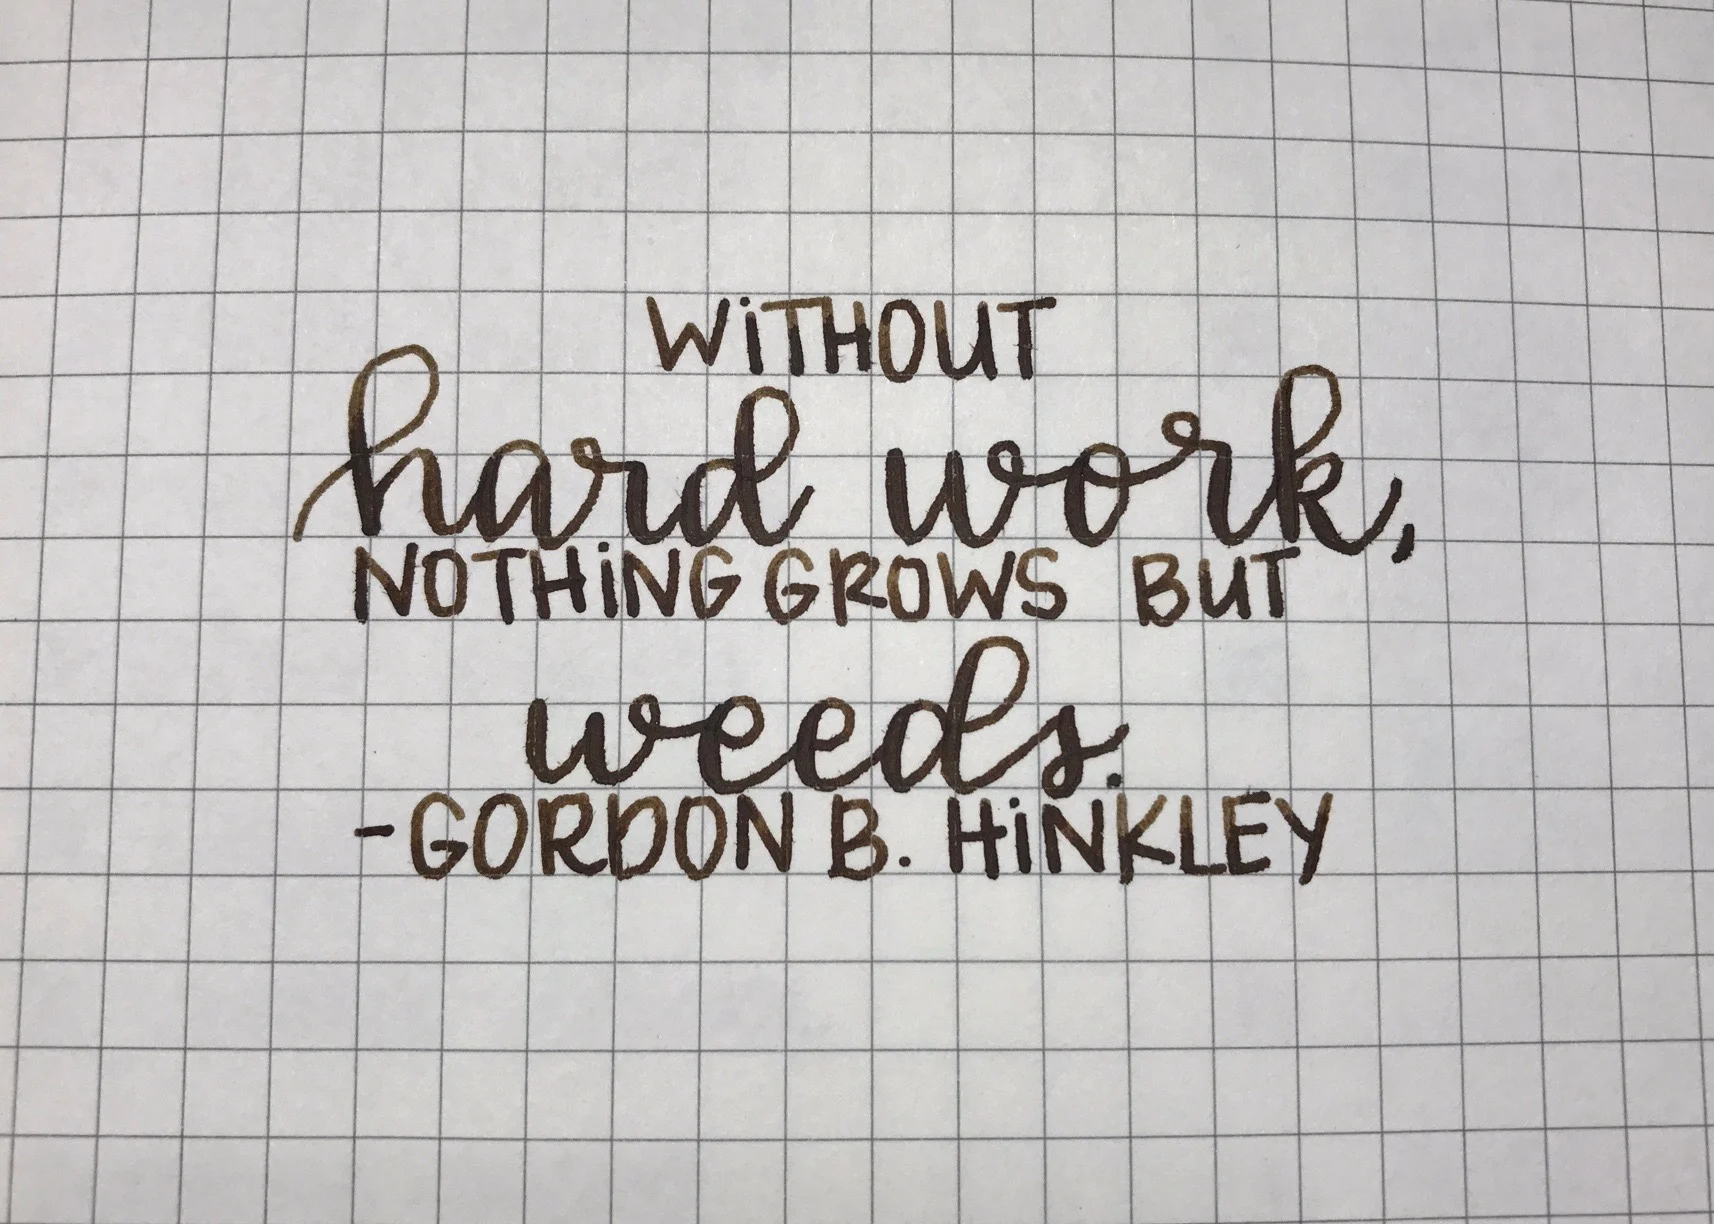 WiTHOUT
hard work,
NOTHiNG GROWS BUT
weeds.
-GORDON B. HiNKLEY